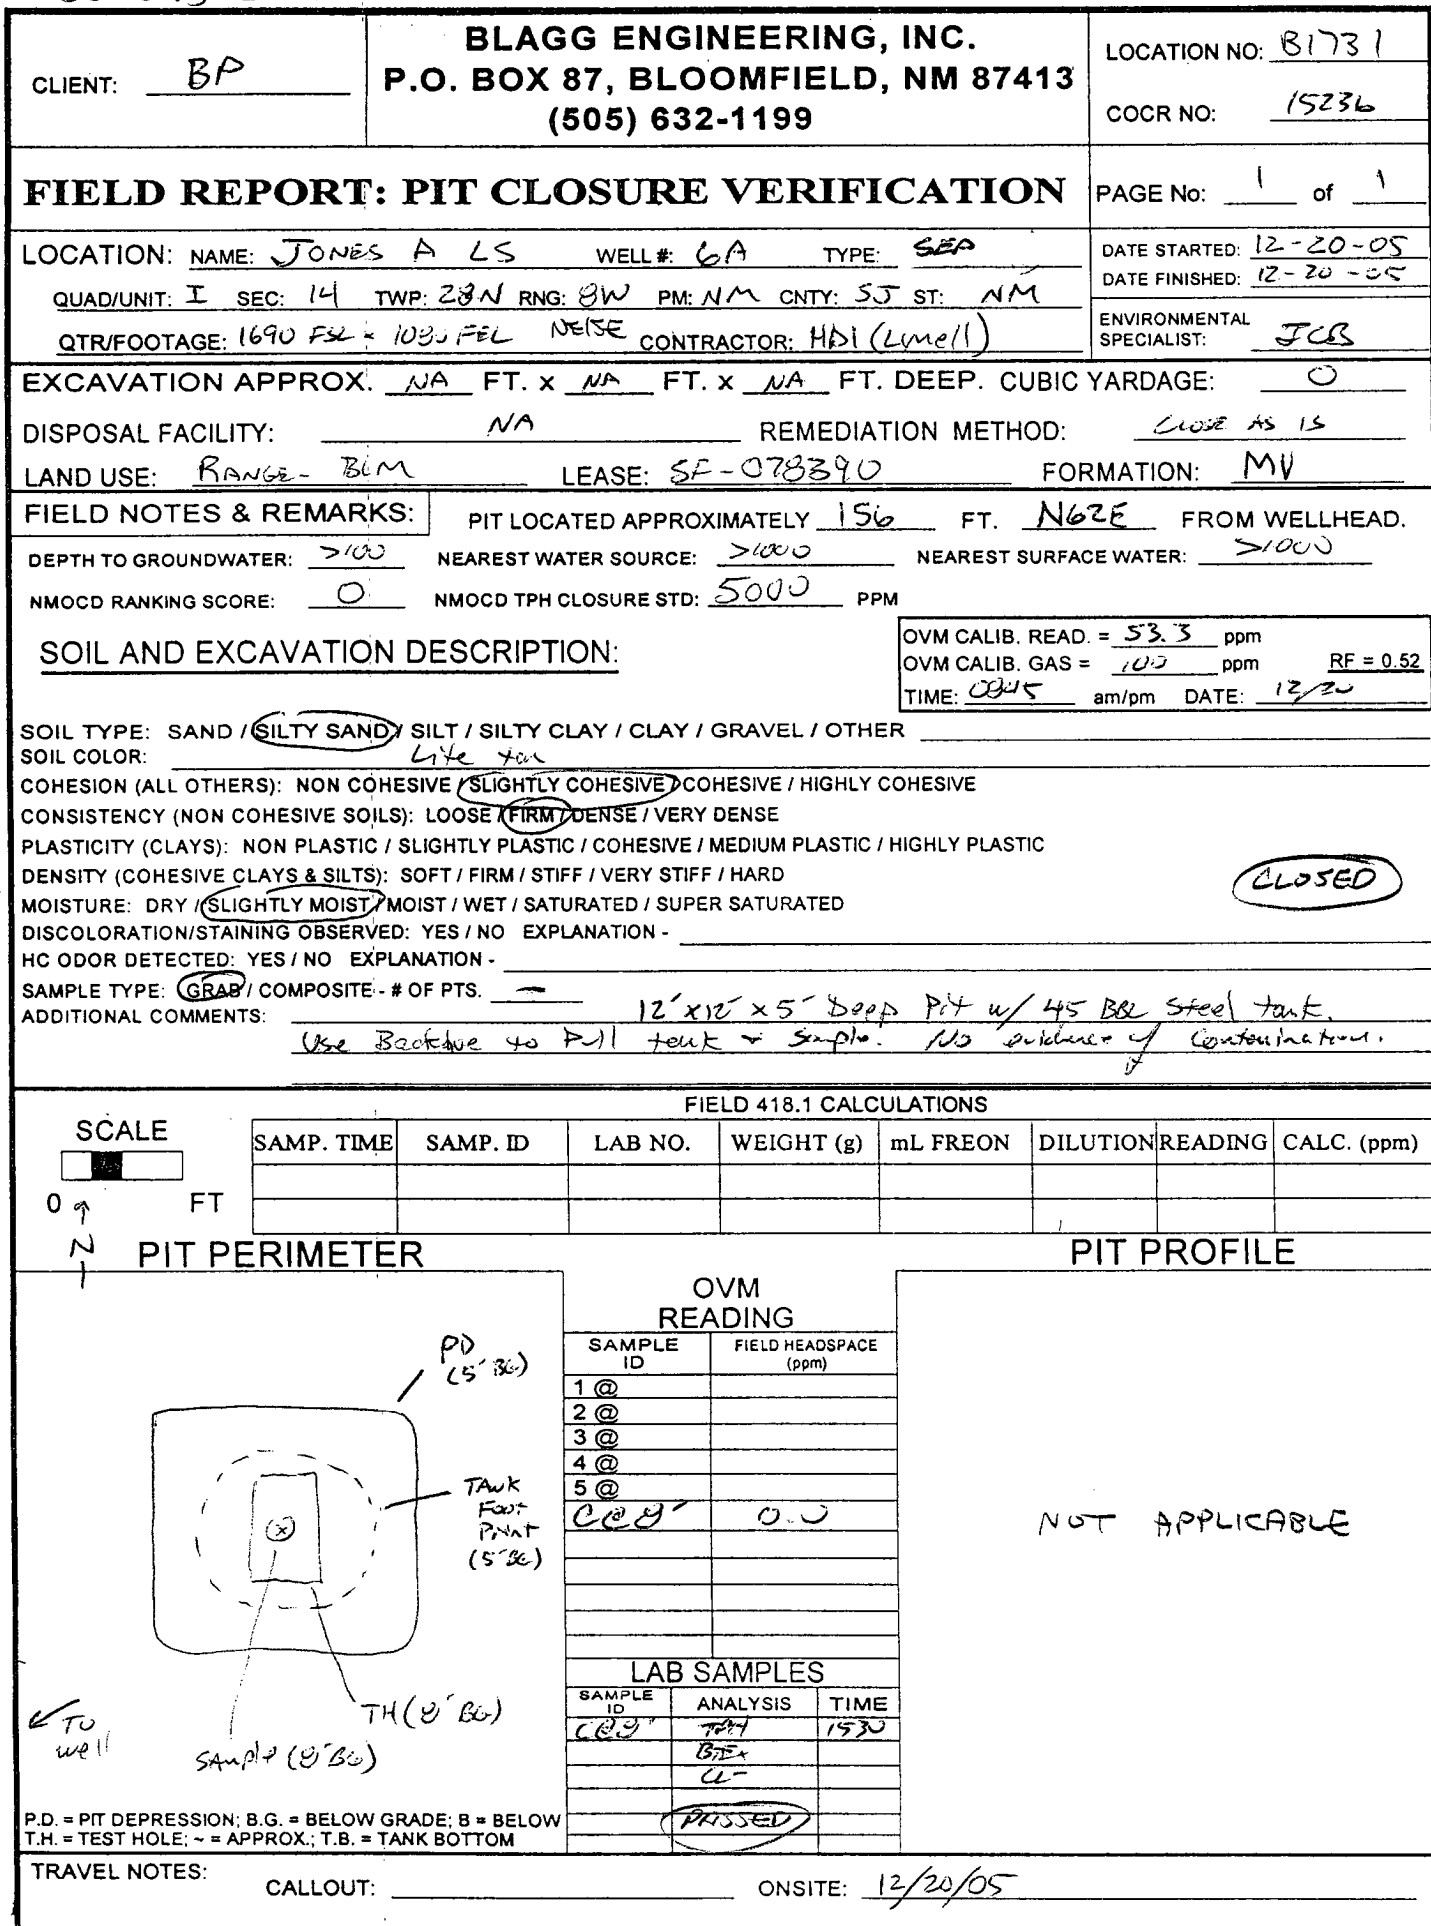 BLAGG ENGINEERING, INC.
P.O. BOX 87, BLOOMFIELD, NM 87413
(505) 632-1199
CLIENT: BP
LOCATION NO: B1731
COCR NO: 15236
FIELD REPORT: PIT CLOSURE VERIFICATION
PAGE No: 1 of 1
LOCATION: NAME: JONES A LS WELL #: 6A TYPE: SEP
DATE STARTED: 12-20-05
DATE FINISHED: 12-20-05
QUAD/UNIT: I SEC: 14 TWP: 28N RNG: 8W PM: NM CNTY: SJ ST: NM
QTR/FOOTAGE: 1690 FSL x 1080 FEL NE/SE CONTRACTOR: HDI (Lmell)
ENVIRONMENTAL SPECIALIST: JCB
EXCAVATION APPROX. NA FT. x NA FT. x NA FT. DEEP. CUBIC YARDAGE: 0
DISPOSAL FACILITY: NA REMEDIATION METHOD: CLOSE AS IS
LAND USE: RANGE - BLM LEASE: SF-078390 FORMATION: MV
FIELD NOTES & REMARKS: PIT LOCATED APPROXIMATELY 156 FT. N62E FROM WELLHEAD.
DEPTH TO GROUNDWATER: >100 NEAREST WATER SOURCE: >1000 NEAREST SURFACE WATER: >1000
NMOCD RANKING SCORE: 0 NMOCD TPH CLOSURE STD: 5000 PPM
SOIL AND EXCAVATION DESCRIPTION:
OVM CALIB. READ. = 53.3 ppm
OVM CALIB. GAS = 100 ppm RF = 0.52
TIME: 0845 am/pm DATE: 12/20
SOIL TYPE: SAND / SILTY SAND / SILT / SILTY CLAY / CLAY / GRAVEL / OTHER
SOIL COLOR: Lite tan
COHESION (ALL OTHERS): NON COHESIVE / SLIGHTLY COHESIVE / COHESIVE / HIGHLY COHESIVE
CONSISTENCY (NON COHESIVE SOILS): LOOSE / FIRM / DENSE / VERY DENSE
PLASTICITY (CLAYS): NON PLASTIC / SLIGHTLY PLASTIC / COHESIVE / MEDIUM PLASTIC / HIGHLY PLASTIC
DENSITY (COHESIVE CLAYS & SILTS): SOFT / FIRM / STIFF / VERY STIFF / HARD
CLOSED
MOISTURE: DRY / SLIGHTLY MOIST / MOIST / WET / SATURATED / SUPER SATURATED
DISCOLORATION/STAINING OBSERVED: YES / NO EXPLANATION -
HC ODOR DETECTED: YES / NO EXPLANATION -
SAMPLE TYPE: GRAB / COMPOSITE - # OF PTS. —
ADDITIONAL COMMENTS: 12' x 12' x 5' Deep Pit w/ 45 BBL Steel tank.
Use Backhoe to Pull tank & Sample. No evidence of Contamination.
FIELD 418.1 CALCULATIONS
SCALE
0 FT
N
SAMP. TIME SAMP. ID LAB NO. WEIGHT (g) mL FREON DILUTION READING CALC. (ppm)
PIT PERIMETER
PIT PROFILE
PD
(5' BG)
TANK
FOOT
PRINT
(5' BG)
TH (8' BG)
SAMPLE (8' BG)
TO
well
OVM
READING
SAMPLE ID FIELD HEADSPACE (ppm)
1 @
2 @
3 @
4 @
5 @
C@8' 0.0
NOT APPLICABLE
LAB SAMPLES
SAMPLE ID ANALYSIS TIME
C@8' TPH 1530
BTEX
Cl-
PASSED
P.D. = PIT DEPRESSION; B.G. = BELOW GRADE; B = BELOW
T.H. = TEST HOLE; ~ = APPROX.; T.B. = TANK BOTTOM
TRAVEL NOTES:
CALLOUT: ONSITE: 12/20/05